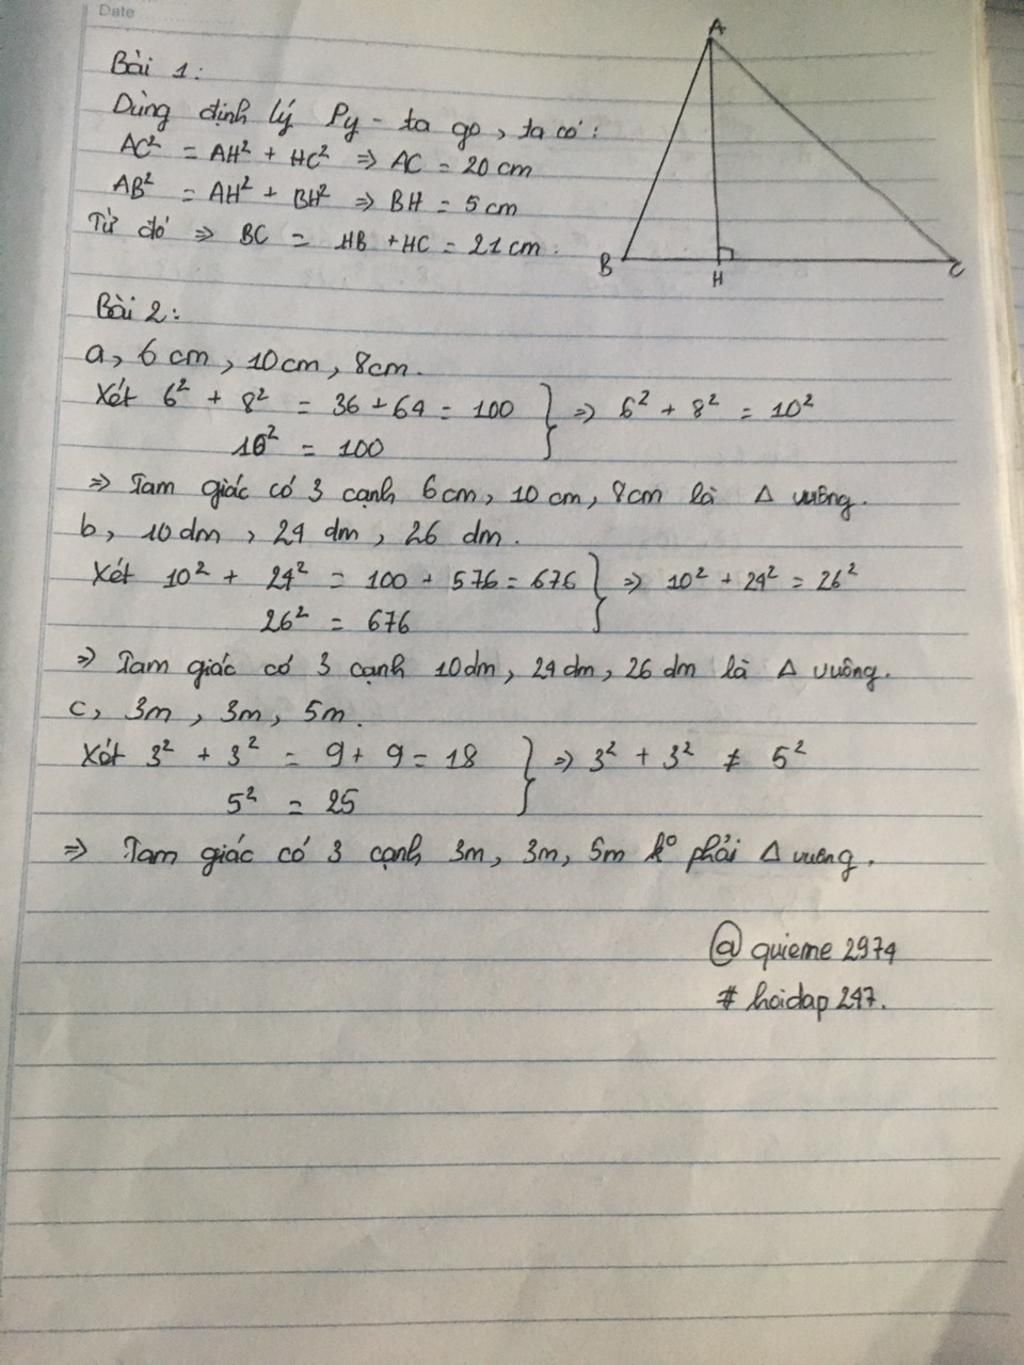 Date
A
Bài 1:
Dùng định lý Py-ta go, ta có:
AC² = AH² + HC² => AC = 20 cm
AB² = AH² + BH² => BH = 5 cm
Từ đó => BC = HB + HC = 21 cm.
B
H
C
Bài 2:
a, 6 cm, 10 cm, 8cm.
Xét 6² + 8² = 36 + 64 = 100 } => 6² + 8² = 10²
10² = 100
=> Tam giác có 3 cạnh 6cm, 10 cm, 8cm là Δ vuông.
b, 10 dm, 24 dm, 26 dm.
Xét 10² + 24² = 100 + 576 = 676 } => 10² + 24² = 26²
26² = 676
=> Tam giác có 3 cạnh 10dm, 24 dm, 26 dm là Δ vuông.
c, 3m, 3m, 5m.
Xét 3² + 3² = 9 + 9 = 18 } => 3² + 3² ≠ 5²
5² = 25
=> Tam giác có 3 cạnh 3m, 3m, 5m k° phải Δ vuông.
@ quieme 2974
# hoidap 247.